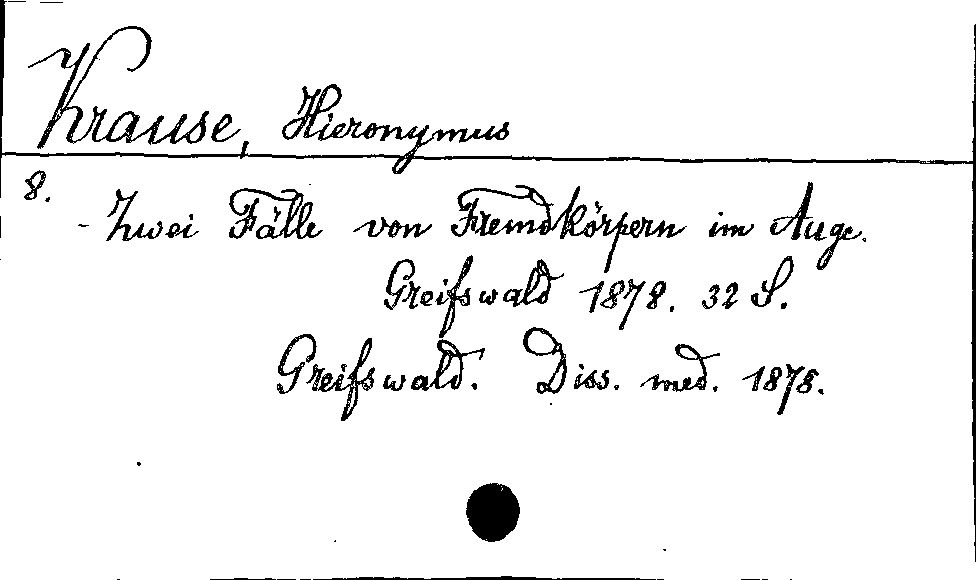 Krause, Hieronymus
8.
- Zwei Fälle von Fremdkörpern im Auge.
Greifswald 1878. 32 S.
Greifswald. Diss. med. 1878.